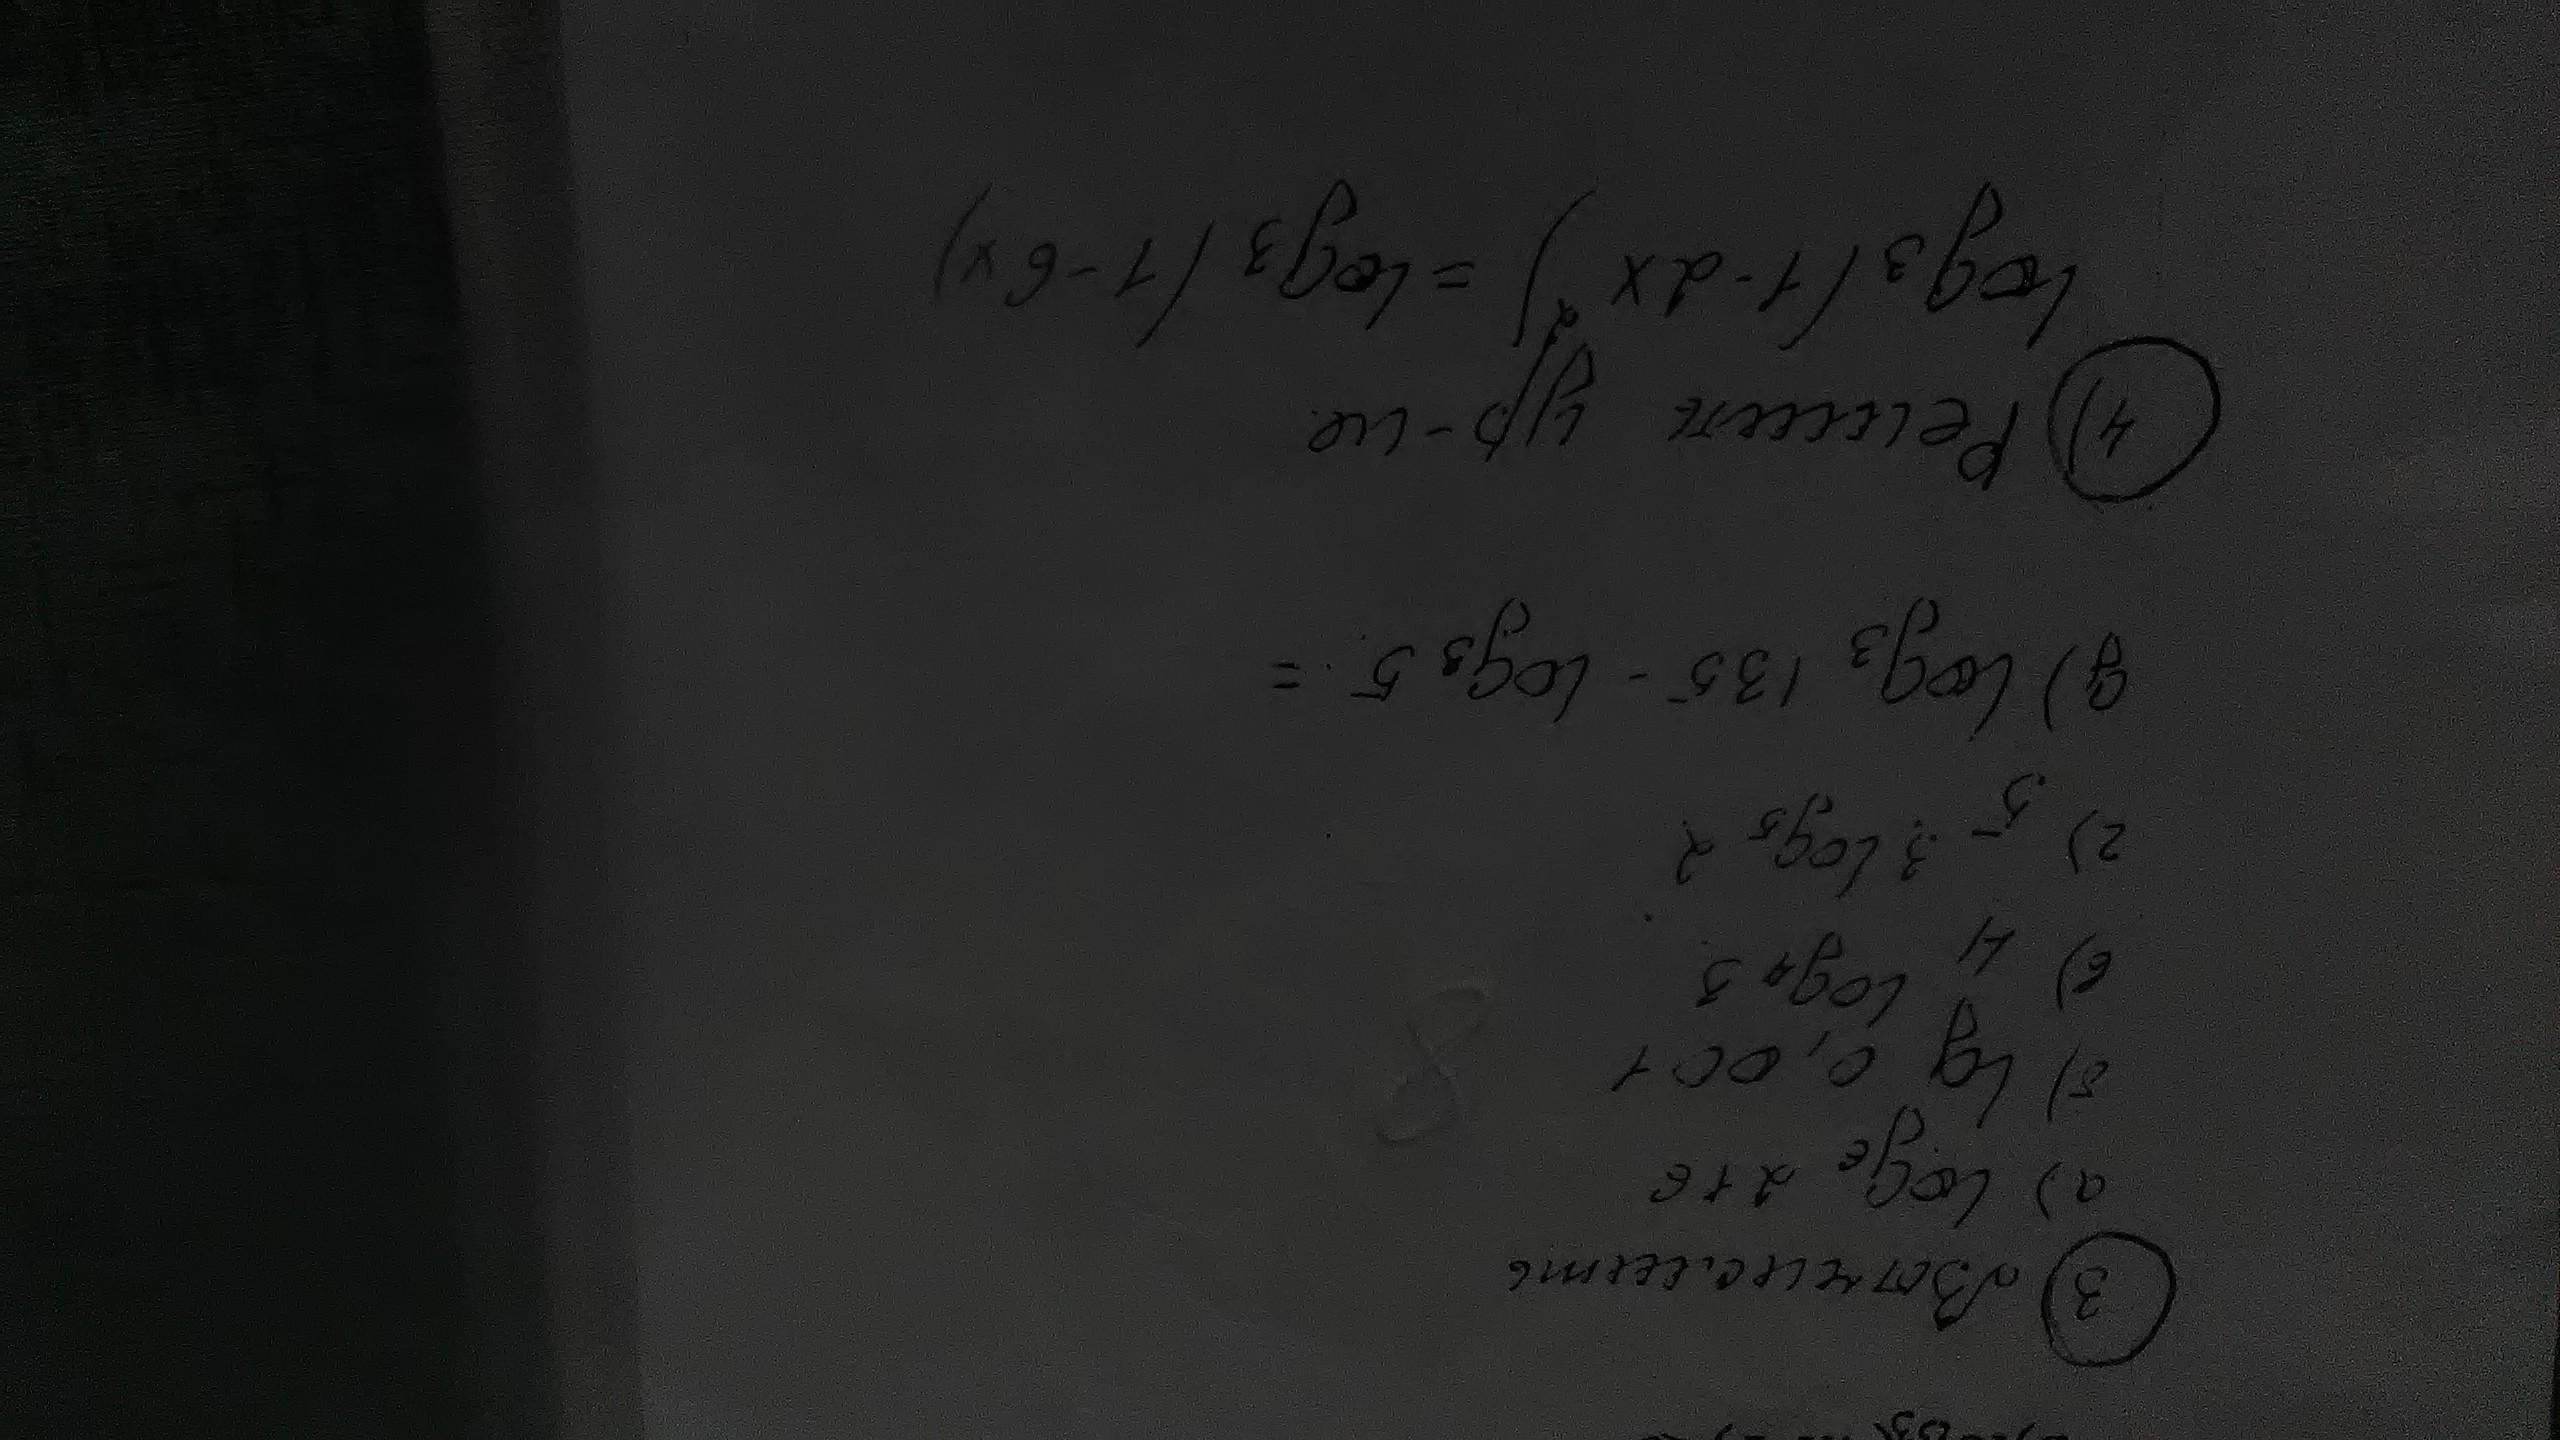 3 Вычислить
а) log₆ 216
б) lg 0,001
в) 4 log₄ 5
г) 5 3 log₅ 2
д) log₃ 135 - log₃ 5 =
4) Решить ур-ие
log₃ (1-2x²) = log₃ (1-6x)